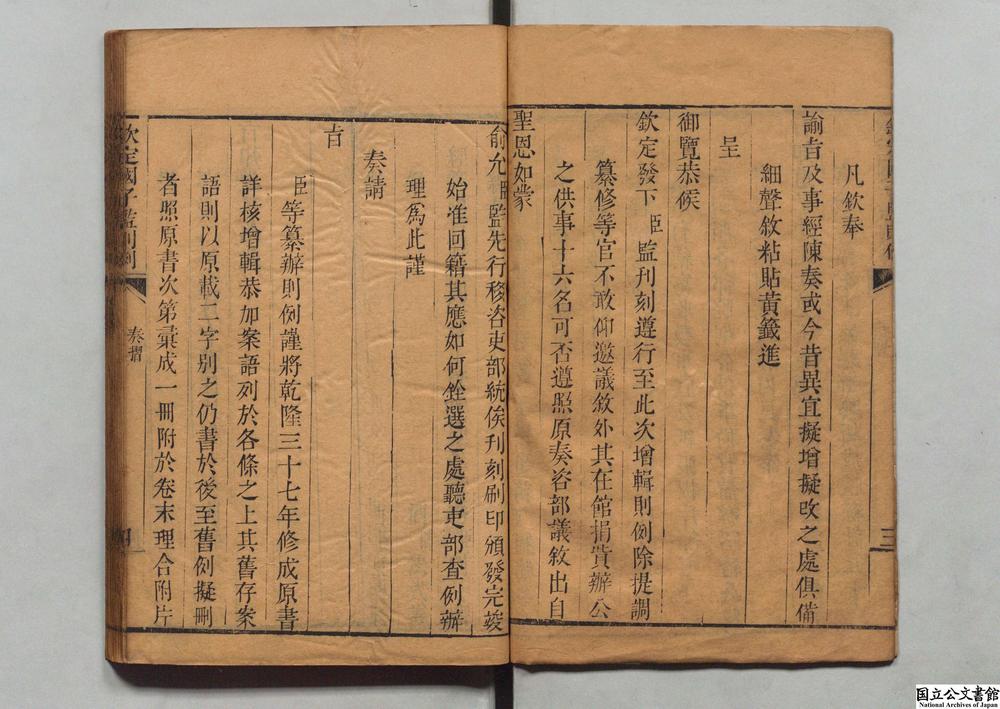 凡欽奉
諭旨及事經陳奏或今昔異宜擬增擬改之處俱備
細聲敘粘貼黃籤進
呈
御覽恭候
欽定發下臣監刊刻遵行至此次增輯則例除提調
纂修等官不敢仰邀議敘外其在館捐貲辦公
之供事十六名可否遵照原奏咨部議敘出自
聖恩如蒙
俞允臣監先行移咨吏部統俟刊刻刷印頒發完竣
始准回籍其應如何銓選之處聽吏部查例辦
理為此謹
奏請
旨
臣等纂辦則例謹將乾隆三十七年修成原書
詳核增輯恭加案語列於各條之上其舊存案
語則以原載二字別之仍書於後至舊例擬刪
者照原書次第彙成一冊附於卷末理合附片
欽定國子監則例
奏摺
三
国立公文書館
National Archives of Japan